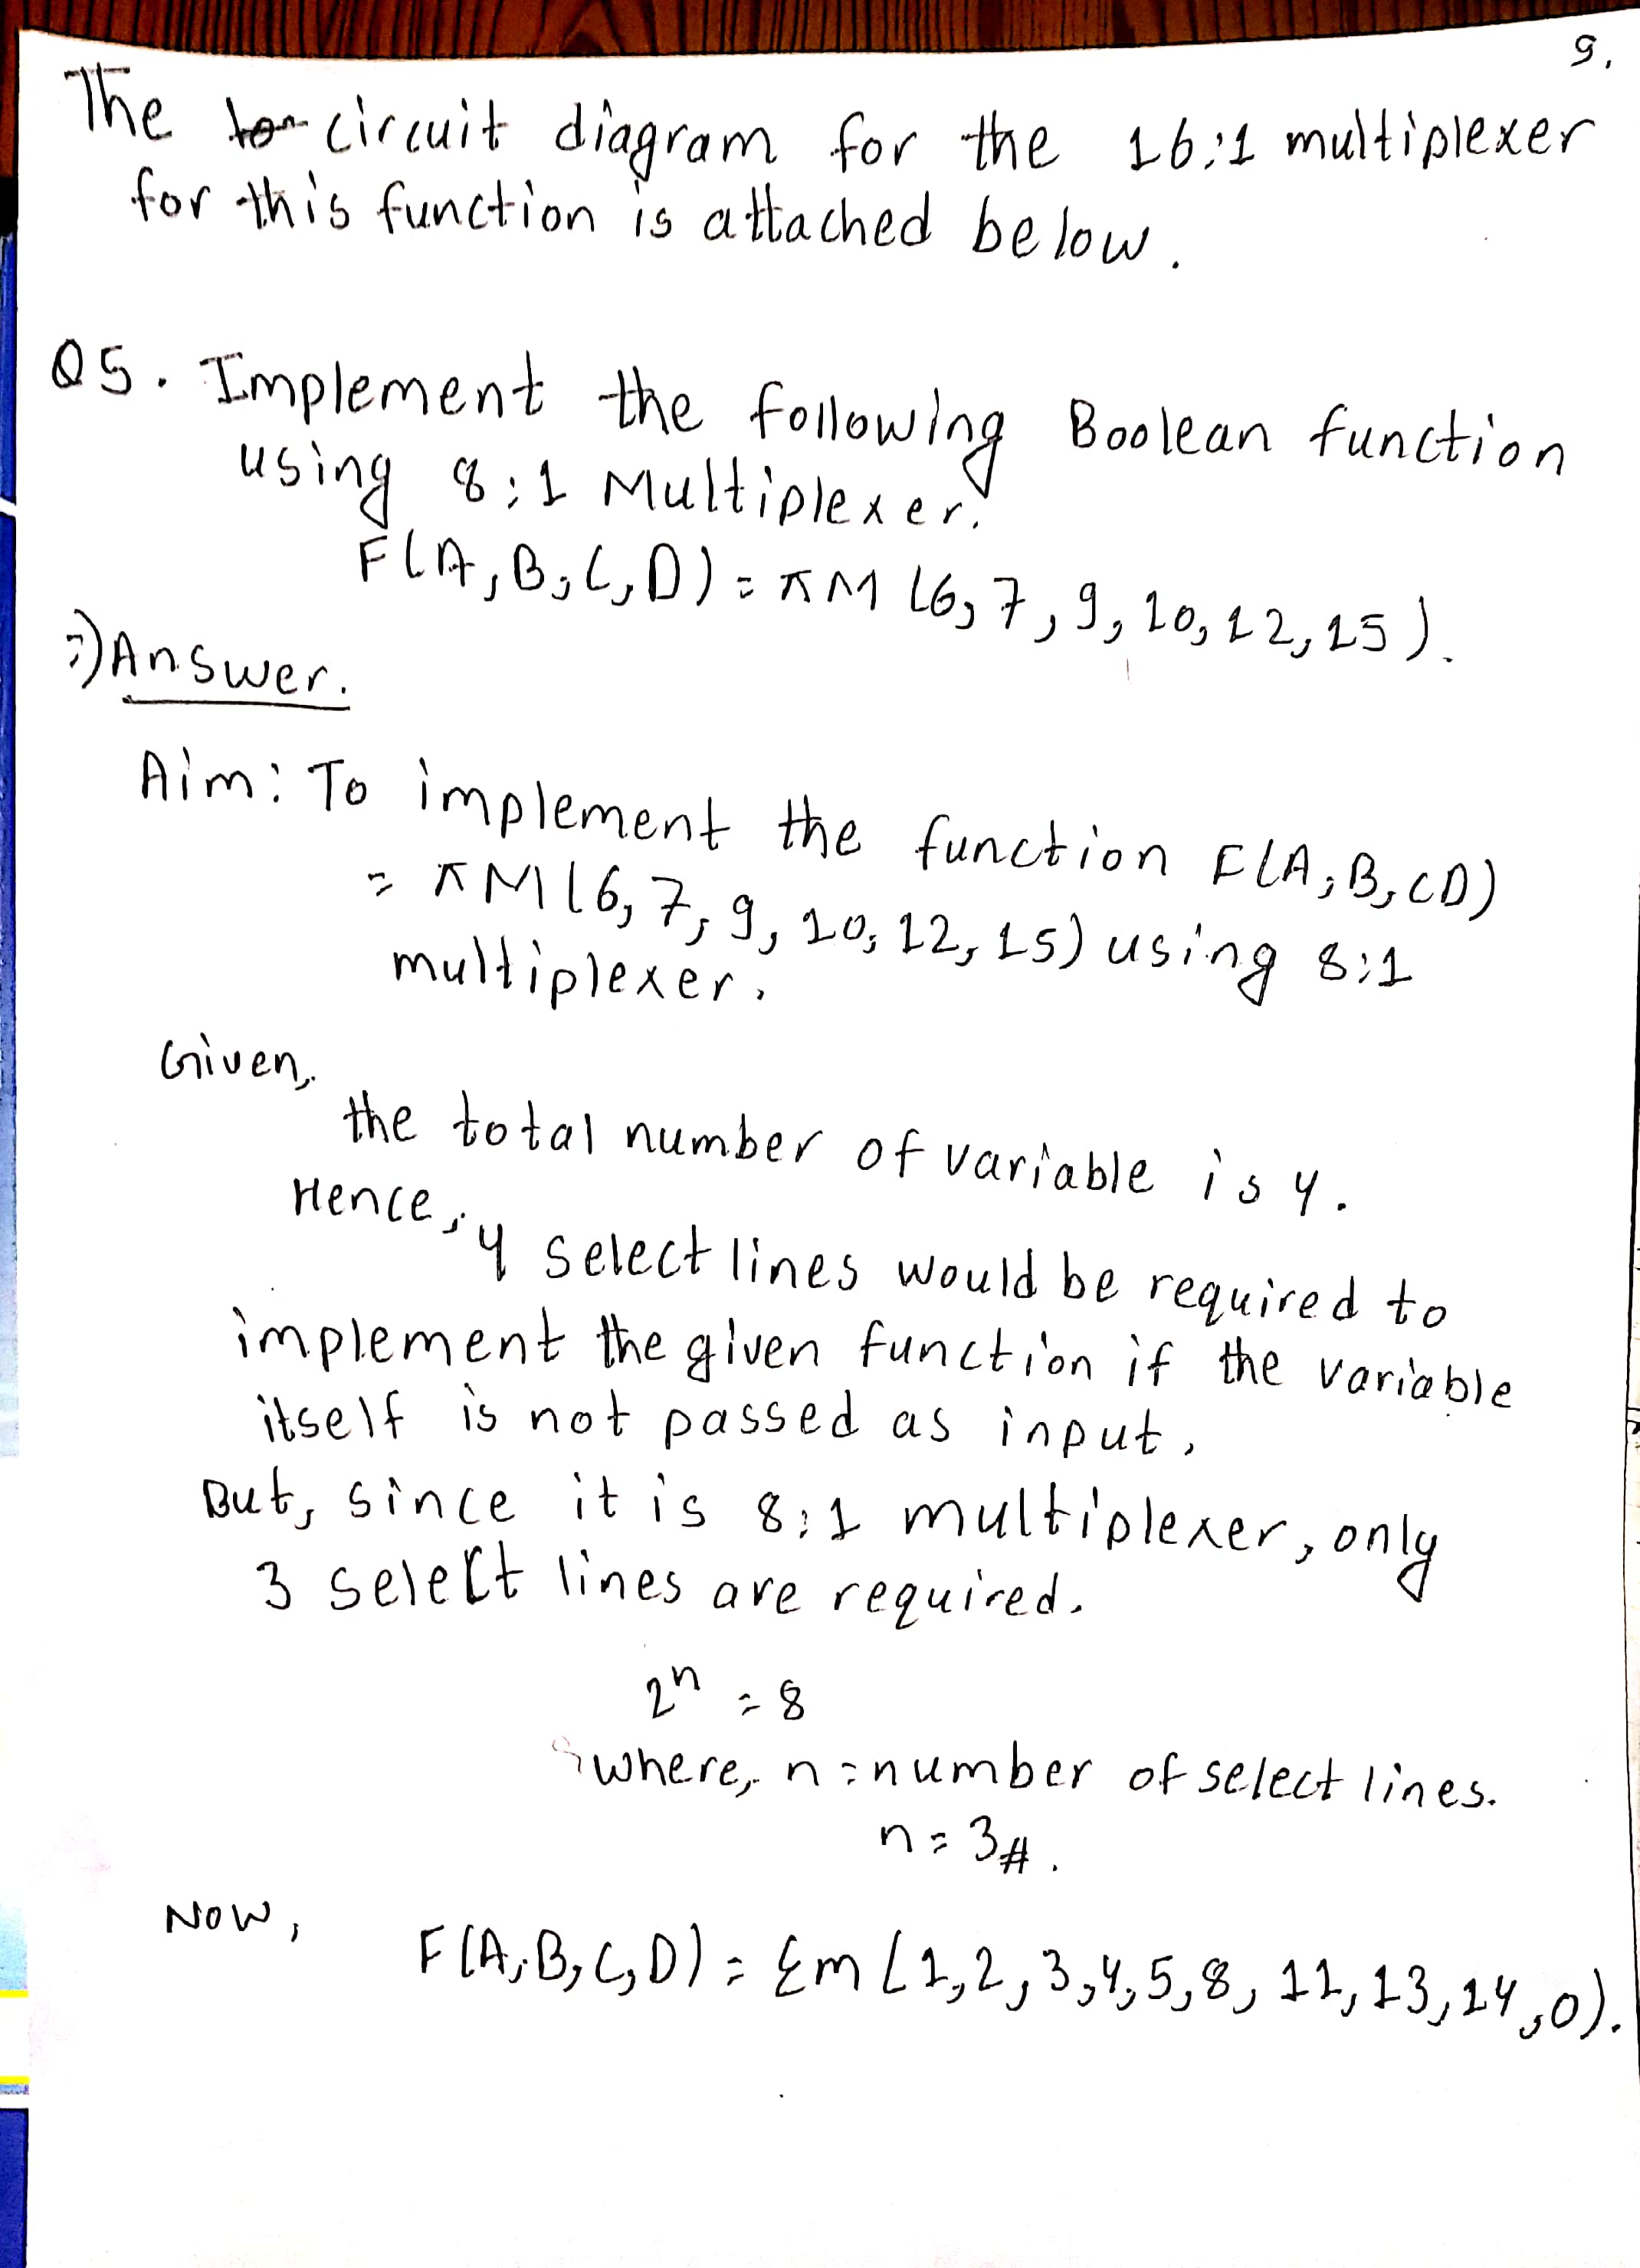 9.
The circuit diagram for the 16:1 multiplexer
for this function is attached below.
Q5. Implement the following Boolean function
using 8:1 Multiplexer.
F(A,B,C,D) = πM (6,7,9,10,12,15).
=) Answer.
Aim: To implement the function F(A,B,CD)
= πM(6,7,9,10,12,15) using 8:1
multiplexer.
Given,
the total number of variable is 4.
Hence, 4 select lines would be required to
implement the given function if the variable
itself is not passed as input.
But, since it is 8:1 multiplexer, only
3 select lines are required.
2ⁿ = 8
where, n = number of select lines.
n = 3#.
Now,
F(A,B,C,D) = Σm (1,2,3,4,5,8,11,13,14,0).